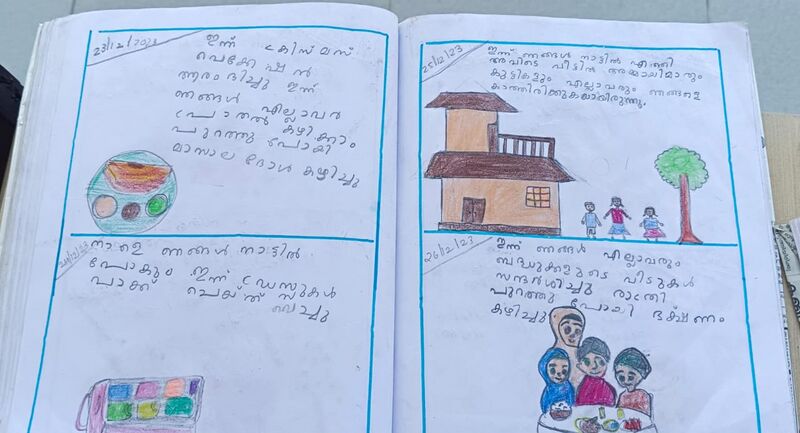 23/12/2023
ഇന്ന് ക്രിസ്മസ്
വെക്കേഷൻ
ആരംഭിച്ചു ഇന്ന്
ഞങ്ങൾ എല്ലാവർ
പ്രാതൽ കഴിക്കാം
പുറത്തു പോയി
മാസാല ദോശ കഴിച്ചു
24/12/23
നാളെ ഞങ്ങൾ നാട്ടിൽ
പോകും ഇന്ന് ഡ്രസുകൾ
പാക്ക് ചെയ്ത്
വെച്ചു
25/12/23
ഇന്ന് ഞങ്ങൾ നാട്ടിൽ എത്തി
അവിടെ വീട്ടിൽ അമ്മായിമാരും
കുട്ടികളും എല്ലാവരും ഞങ്ങളെ
കാത്തിരിക്കുകയായിരുന്നു.
26/12/23
ഇന്ന് ഞങ്ങൾ എല്ലാവരും
ബന്ധുക്കളുടെ വീടുകൾ
സന്ദർശിച്ചു രാത്രി
പുറത്തു പോയി ഭക്ഷണം
കഴിച്ചു